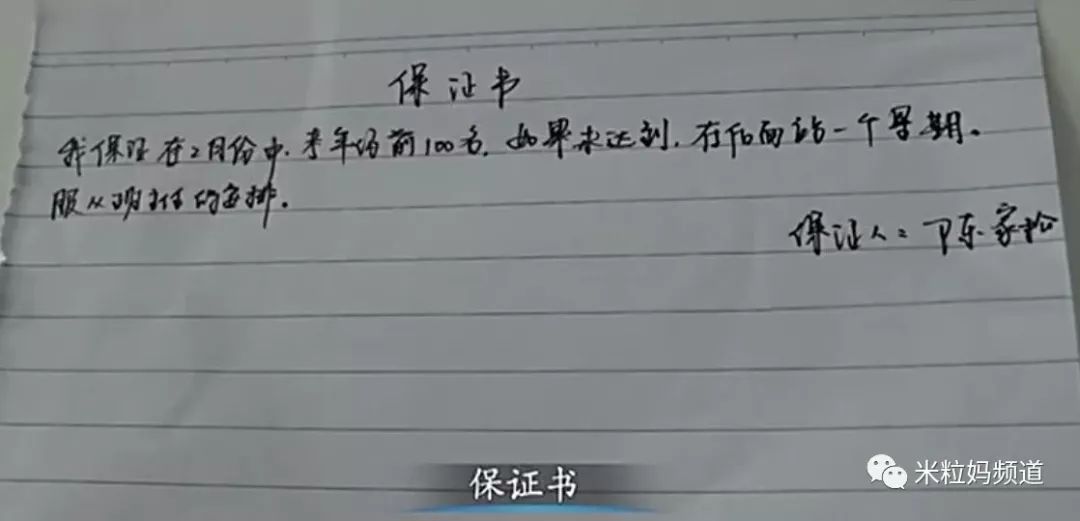 保证书
我保证在2月份中.考年级前100名.如果未达到.在后面站一个星期。
服从班主任的安排.
保证人:陈家松
保证书
米粒妈频道